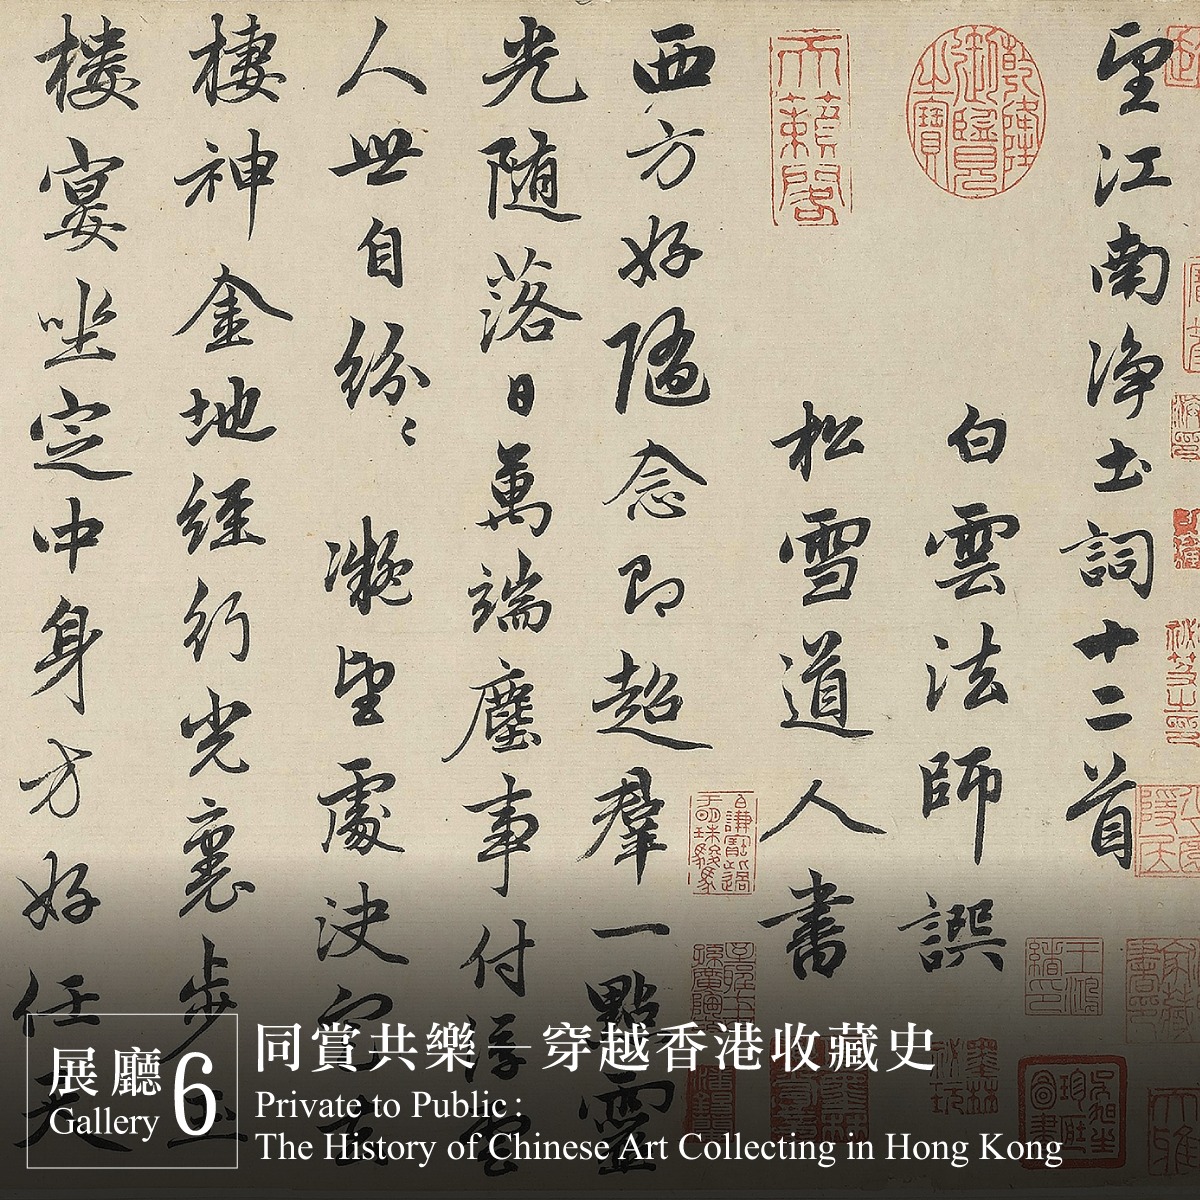 望江南淨土詞十二首
白雲法師譔
松雪道人書
西方好隨念即超羣一點靈
光随落日萬端塵事付浮雲
人世自紛〻凝望處決定去
棲神金地經行光裏步玉
楼宴坐定中身方好任
乾隆御覽之寶
天籟閣
展廳
Gallery 6
同賞共樂—穿越香港收藏史
Private to Public:
The History of Chinese Art Collecting in Hong Kong